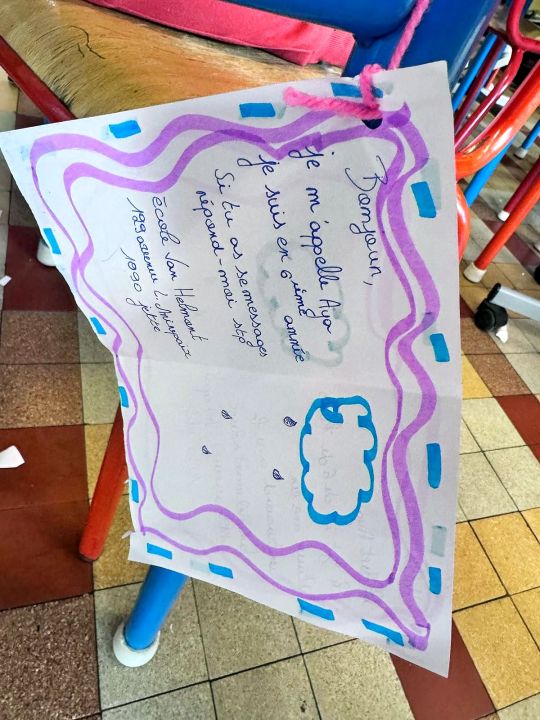 Bonjour,
je m'appelle Aya
je suis en 6 ième année
Si tu as se messages
répond-moi stp
école Van Helmont
1090 jette